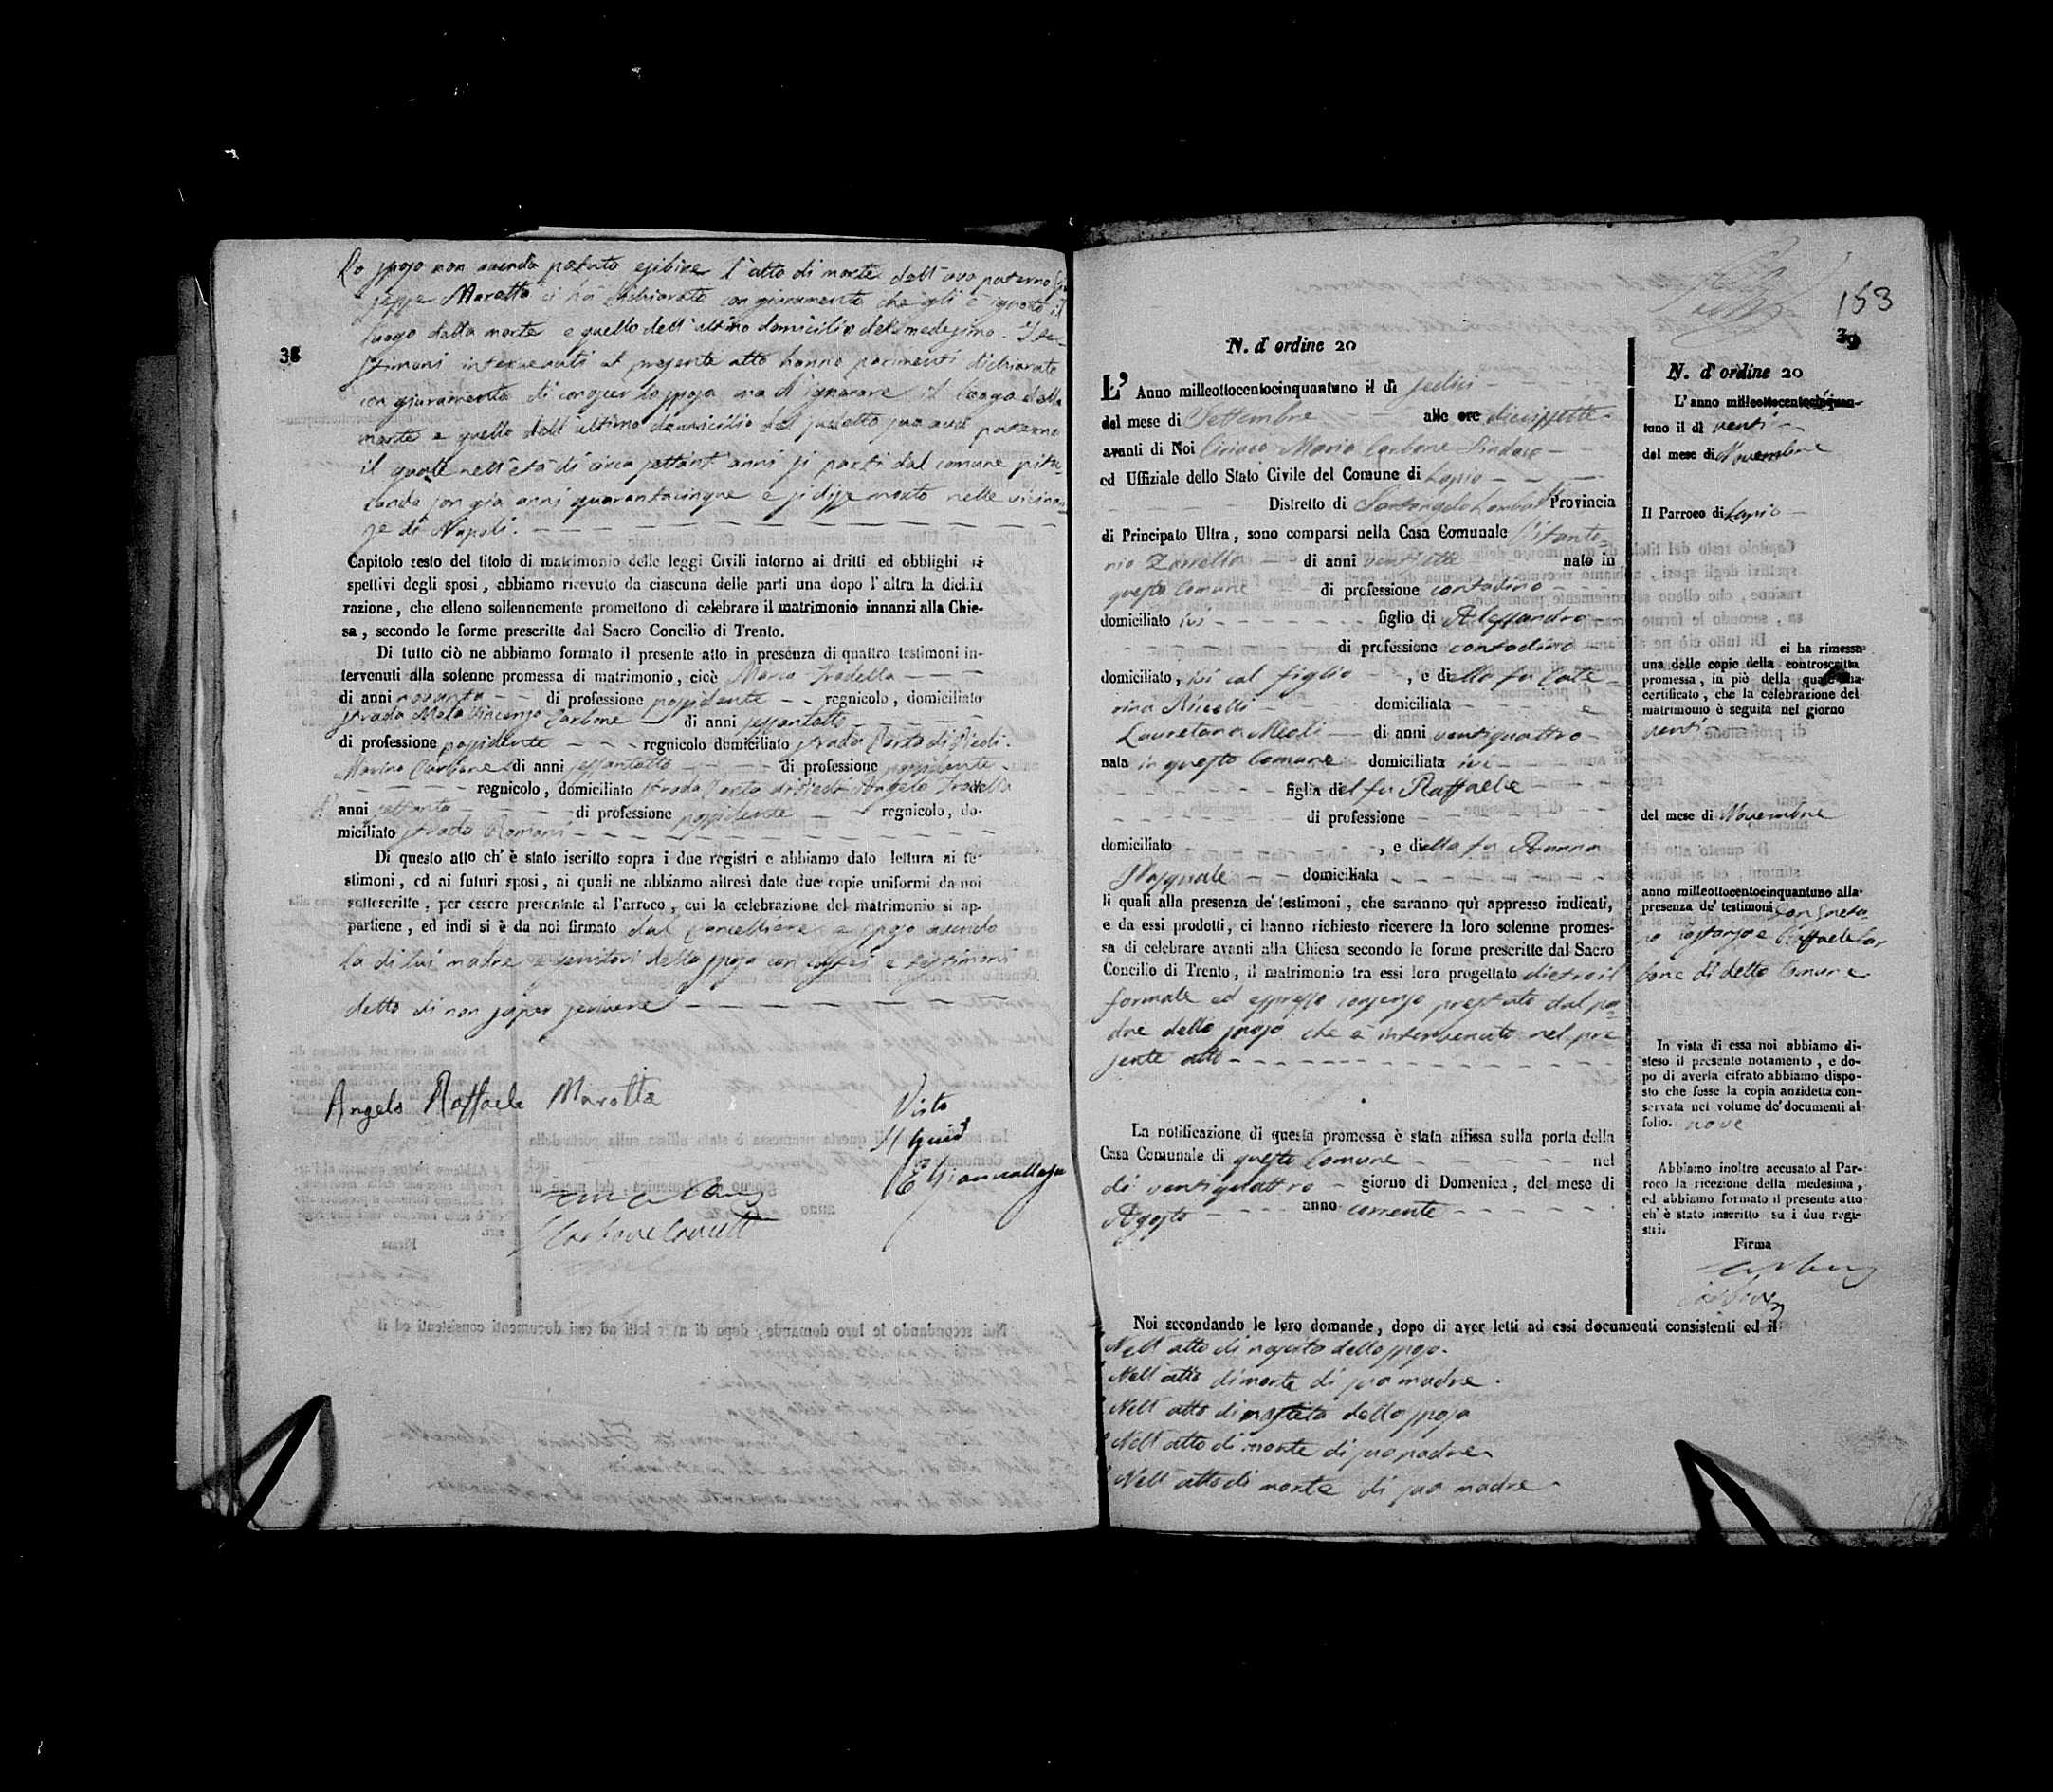 Lo sposo non avendo potuto esibire l'atto di morte dell'avo paterno Giu
seppe Marotta ci ha dichiarato con giuramento che gli è ignoto il
luogo della morte e quello dell'ultimo domicilio del medesimo. I te-
38
stimoni intervenuti al presente atto hanno parimenti dichiarato
con giuramento di conoscer lo sposo ma di ignorare il luogo della
morte e quello dell'ultimo domicilio del sudetto suo avo paterno
il quale nell'età di circa settant'anni si partì dal comune
son già anni quarantacinque e si disse morto nelle vicinan
ze di Napoli.
Capitolo sesto del titolo di matrimonio delle leggi Civili intorno ai dritti ed obblighi ri
spettivi degli sposi, abbiamo ricevuto da ciascuna delle parti una dopo l'altra la dichia
razione, che elleno sollennemente promettono di celebrare il matrimonio innanzi alla Chie-
sa, secondo le forme prescritte dal Sacro Concilio di Trento.
Di tutto ciò ne abbiamo formato il presente atto in presenza di quattro testimoni in-
tervenuti alla solenne promessa di matrimonio, cioè Mario Iradella
di anni di professione possidente regnicolo, domiciliato
strada Mela Vincenzo Carbone di anni sessantotto
di professione possidente regnicolo domiciliato strada Porta di Piedi.
Marino Carbone di anni sessantotto di professione possidente
regnicolo, domiciliato strada Porta di Piedi Angelo Iradella
di anni settanta di professione possidente regnicolo, do-
miciliato strada Romani
Di questo atto ch'è stato iscritto sopra i due registri e abbiamo dato lettura ai te-
stimoni, ed ai futuri sposi, ai quali ne abbiamo altresì date due copie uniformi da noi
sottoscritte, per essere presentate al Parroco, cui la celebrazione del matrimonio si ap-
partiene, ed indi si è da noi firmato dal Cancelliere e sposo avendo
la di lui madre e genitori della sposa con essi e testimoni
detto di non saper scrivere
Angelo Raffaele Marotta
Visto
Il Giud
Carbone Cancell
153
39
N. d'ordine 20
L'Anno milleottocentocinquantuno il dì sedici
del mese di Settembre alle ore diecissette
avanti di Noi Ciriaco Maria Carbone Sindaco
ed Uffiziale dello Stato Civile del Comune di Lapio
Distretto di Santangelo Lombardi Provincia
di Principato Ultra, sono comparsi nella Casa Comunale Vitanto-
nio Zarrella di anni ventisette nato in
questo Comune di professione contadino
domiciliato ivi figlio di Alessandro
di professione contadino
domiciliato, ivi col figlio, e della fu Cate-
rina Riccielli domiciliata e
Lauretana Meoli di anni ventiquattro
nata in questo Comune domiciliata ivi
figlia del fu Raffaele
di professione
domiciliato, e della fu Avanna
Pasquale domiciliata
li quali alla presenza de' testimoni, che saranno quì appresso indicati,
e da essi prodotti, ci hanno richiesto ricevere la loro solenne promes-
sa di celebrare avanti alla Chiesa secondo le forme prescritte dal Sacro
Concilio di Trento, il matrimonio tra essi loro progettato dietro il
formale ed espresso consenso prestato dal pa-
dre dello sposo che è intervenuto nel pre
sente atto
La notificazione di questa promessa è stata affissa sulla porta della
Casa Comunale di questo Comune nel
dì ventiquattro giorno di Domenica, del mese di
Agosto anno corrente
Noi secondando le loro domande, dopo di aver letti ad essi documenti consistenti ed il
Nell'atto di nascita dello sposo.
Nell'atto di morte di sua madre.
Nell'atto di nascita della sposa
Nell'atto di morte di suo padre
Nell'atto di morte di sua madre
N. d'ordine 20
L'anno milleottocentocinquan-
tuno il dì venti
del mese di Novembre
Il Parroco di Lapio
ci ha rimessa
una delle copie della controscritta
promessa, in piè della quale ha
certificato, che la celebrazione del
matrimonio è seguita nel giorno
venti
del mese di Novembre
anno milleottocentocinquantuno alla
presenza de' testimoni Don Gaeta-
no Costanzo e Raffaele Car
bone di detto Comune
In vista di essa noi abbiamo di-
steso il presente notamento, e do-
po di averla cifrato abbiamo dispo-
sto che fosse la copia anzidetta con-
servata nel volume de' documenti al
folio. nove
Abbiamo inoltre accusato al Par-
roco la ricezione della medesima,
ed abbiamo formato il presente atto
ch'è stato inscritto su i due regi-
stri.
Firma